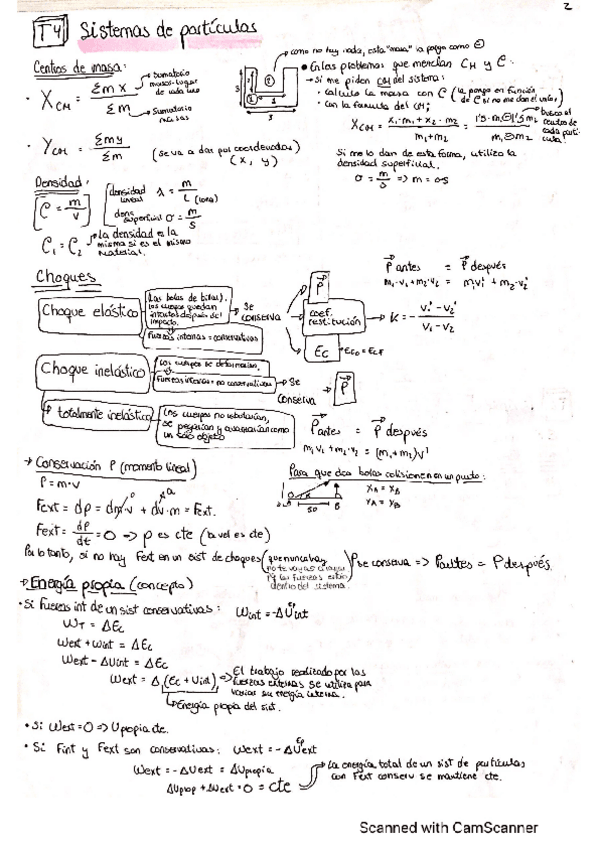 2
T4 Sistemas de partículas
Centros de masa:
· X_CM = Σm x / Σm
Sumatorio masas·lugar de cada uno
Sumatorio masas
· Y_CM = Σmy / Σm (se va a dar por coordenadas) (x, y)
como no hay nada, esta "masa" la pongo como ⊖
• En los problemas que mezclan CM y ρ:
→ Si me piden CM del sistema:
• calculo la masa con ρ (la pongo en función de ρ si no me dan el valor)
• Con la formula del CM;
X_CM = x₁·m₁ + x₂·m₂ / m₁+m₂ = 1'5·m₁⊖1'5m₂ / m₁⊖m₂
busco el centro de cada partícula
Si me lo dan de esta forma, utilizo la densidad superficial.
σ = m/s => m = σ·s
Densidad:
ρ = m/v
densidad lineal λ = m/L (long)
dens superficial σ = m/s
ρ₁ = ρ₂
la densidad es la misma si es el mismo material.
Choques
P antes = P después
m₁·v₁ + m₂·v₂ = m₁v₁' + m₂·v₂'
Choque elástico
(Las bolas de billar). los cuerpos quedan intactos después del impacto.
Fuerzas internas = conservativas
Se conserva
P
coef. restitución → K = - v₁' - v₂' / v₁ - v₂
Ec → Eco = Ecf
Choque inelástico
Los cuerpos se deforman.
Fuerzas internas = no conservativas
→ Se conserva → P
totalmente inelástico
Los cuerpos no rebotarían, se pegarían y avanzarían como un solo objeto
P antes = P después
m₁v₁ + m₂·v₂ = (m₁+m₂)v'
→ Conservación P (momento lineal)
P = m·v
Fext = dp = dm·v + dv·m = Fext.
Fext = dp/dt = 0 → p es cte (la vel es cte)
Para que dos bolas colisionen en un punto:
50
B
X_A = X_B
Y_A = Y_B
Por lo tanto, si no hay Fext en un sist de choques (que nunca hay
y las fuerzas están dentro del sistema) P se conserva => P antes = P después.
→ Energía propia (concepto)
• Si fuerzas int de un sist conservativas: Wint = -ΔUint
W_T = ΔEc
Wext + Wint = ΔEc
Wext - ΔUint = ΔEc
Wext = Δ(Ec + Uint)
El trabajo realizado por las fuerzas externas se utiliza para variar su energía interna.
Energía propia del sist.
• Si Wext = 0 => Upropia cte.
• Si Fint y Fext son conservativas: Wext = -ΔUext
Ep
Wext = -ΔUext = ΔUpropia
ΔUprop + ΔUext = 0 = cte
La energía total de un sist de partículas con Fext conserv se mantiene cte.
Scanned with CamScanner